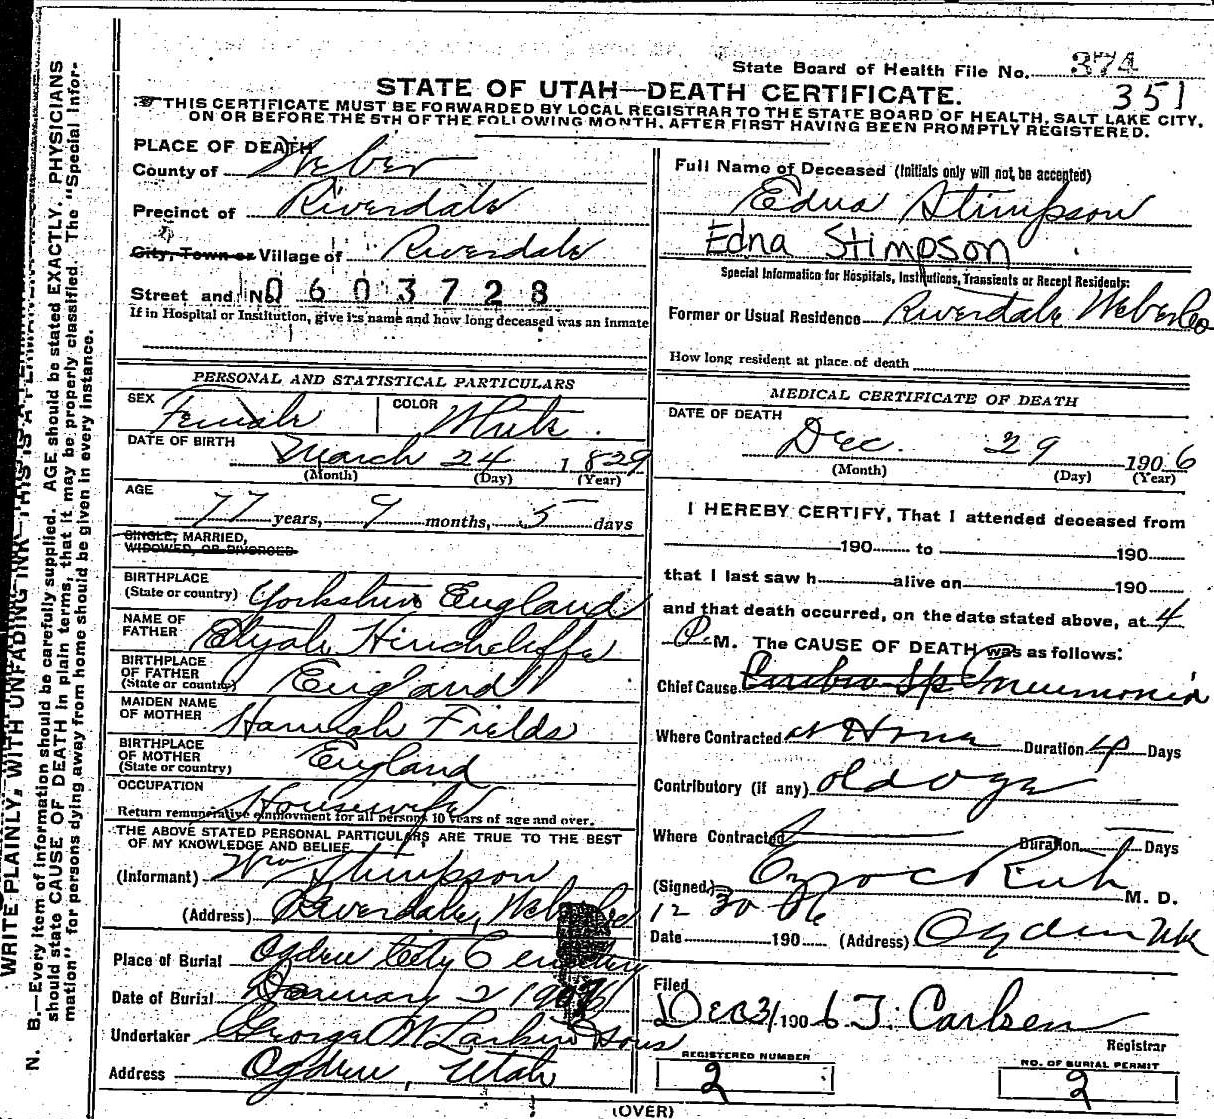 State Board of Health File No. 374
351
STATE OF UTAH—DEATH CERTIFICATE.
THIS CERTIFICATE MUST BE FORWARDED BY LOCAL REGISTRAR TO THE STATE BOARD OF HEALTH, SALT LAKE CITY,
ON OR BEFORE THE 5TH OF THE FOLLOWING MONTH, AFTER FIRST HAVING BEEN PROMPTLY REGISTERED.
PLACE OF DEATH
County of Weber
Precinct of Riverdale
City, Town or Village of Riverdale
Street and No. 0603728
If in Hospital or Institution, give its name and how long deceased was an inmate
PERSONAL AND STATISTICAL PARTICULARS
SEX Female COLOR White
DATE OF BIRTH March 24 1829
(Month) (Day) (Year)
AGE
77 years, 9 months, 5 days
SINGLE, MARRIED,
WIDOWED, OR DIVORCED
BIRTHPLACE
(State or country) Yorkshire England
NAME OF
FATHER Elijah Hinchcliffe
BIRTHPLACE
OF FATHER
(State or country) England
MAIDEN NAME
OF MOTHER Hannah Fields
BIRTHPLACE
OF MOTHER
(State or country) England
OCCUPATION
Housewife
Return remunerative employment for all persons 10 years of age and over.
THE ABOVE STATED PERSONAL PARTICULARS ARE TRUE TO THE BEST
OF MY KNOWLEDGE AND BELIEF
(Informant) Wm Stimpson
(Address) Riverdale, Weber Co
Place of Burial Ogden City Cemetery
Date of Burial January 2 190
Undertaker George W Larkin & Sons
Address Ogden, Utah
Full Name of Deceased (Initials only will not be accepted)
Edna Stimpson
Edna Stimpson
Special Information for Hospitals, Institutions, Transients or Recept Residents:
Former or Usual Residence Riverdale Weber Co
How long resident at place of death
MEDICAL CERTIFICATE OF DEATH
DATE OF DEATH
Dec. 29 1906
(Month) (Day) (Year)
I HEREBY CERTIFY, That I attended deceased from
190 to 190
that I last saw h alive on 190
and that death occurred, on the date stated above, at 4
P M. The CAUSE OF DEATH was as follows:
Chief Cause Pneumonia
Where Contracted at Home Duration 4 Days
Contributory (if any) old age
Where Contracted Duration Days
(Signed) M. D.
12 30 06
Date 190 (Address) Ogden Utah
Filed
Dec 31 1906 T. Carlsen
Registrar
REGISTERED NUMBER
2
NO. OF BURIAL PERMIT
2
(OVER)
N. B.—Every item of information should be carefully supplied. AGE should be stated EXACTLY. PHYSICIANS
should state CAUSE OF DEATH in plain terms, that it may be properly classified. The "Special Infor-
mation" for persons dying away from home should be given in every instance.
WRITE PLAINLY, WITH UNFADING INK—THIS IS A PERMANENT